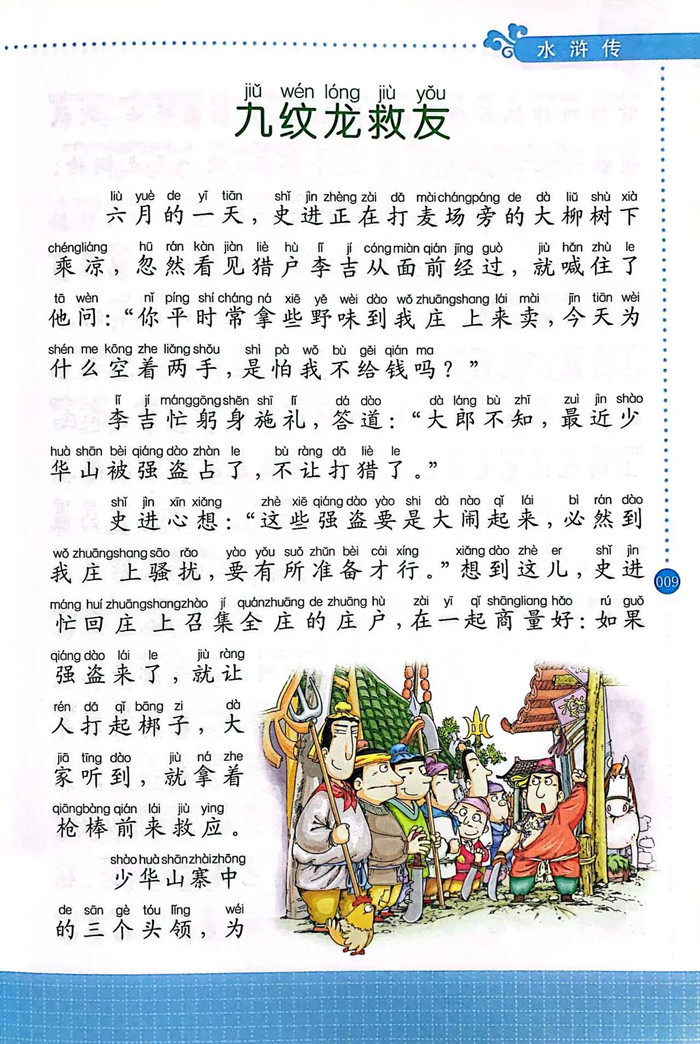 水浒传
jiǔ wén lóng jiù yǒu
九纹龙救友
liù yuè de yī tiān shǐ jìn zhèng zài dǎ mài cháng páng de dà liǔ shù xià
六月的一天，史进正在打麦场旁的大柳树下
chéng liáng hū rán kàn jiàn liè hù lǐ jí cóng miàn qián jīng guò jiù hǎn zhù le
乘凉，忽然看见猎户李吉从面前经过，就喊住了
tā wèn nǐ píng shí cháng ná xiē yě wèi dào wǒ zhuāng shang lái mài jīn tiān wèi
他问：“你平时常拿些野味到我庄上来卖，今天为
shén me kōng zhe liǎng shǒu shì pà wǒ bù gěi qián ma
什么空着两手，是怕我不给钱吗？”
lǐ jí máng gōng shēn shī lǐ dá dào dà láng bù zhī zuì jìn shào
李吉忙躬身施礼，答道：“大郎不知，最近少
huà shān bèi qiáng dào zhàn le bù ràng dǎ liè le
华山被强盗占了，不让打猎了。”
shǐ jìn xīn xiǎng zhè xiē qiáng dào yào shi dà nào qǐ lái bì rán dào
史进心想：“这些强盗要是大闹起来，必然到
wǒ zhuāng shang sāo rǎo yào yǒu suǒ zhǔn bèi cái xíng xiǎng dào zhè er shǐ jìn
我庄上骚扰，要有所准备才行。”想到这儿，史进
máng huí zhuāng shang zhào jí quán zhuāng de zhuāng hù zài yī qǐ shāng liang hǎo rú guǒ
忙回庄上召集全庄的庄户，在一起商量好：如果
qiáng dào lái le jiù ràng
强盗来了，就让
rén dǎ qǐ bāng zi dà
人打起梆子，大
jiā tīng dào jiù ná zhe
家听到，就拿着
qiāng bàng qián lái jiù ying
枪棒前来救应。
shào huà shān zhài zhōng
少华山寨中
de sān gè tóu lǐng wéi
的三个头领，为
009